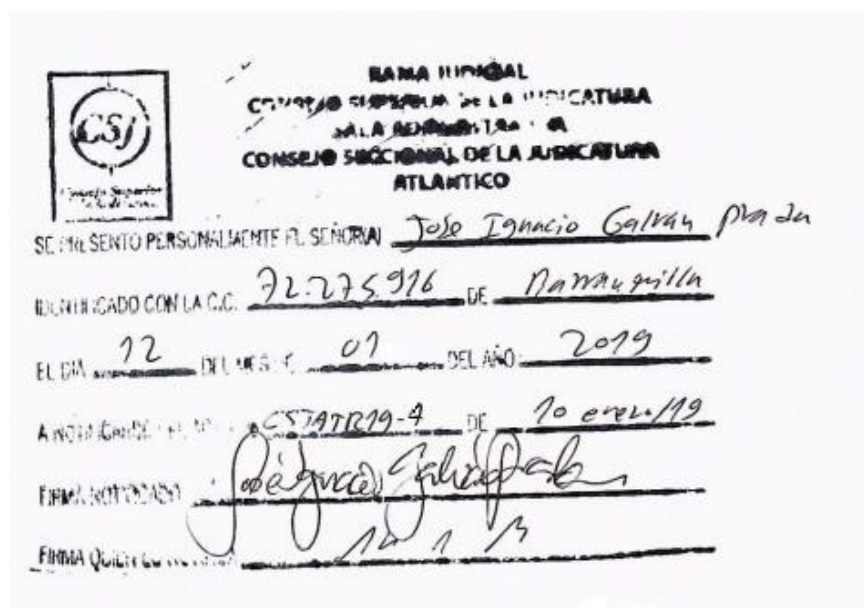 CSJ
Consejo Superior
RAMA JUDICIAL
CONSEJO SUPERIOR DE LA JUDICATURA
SALA ADMINISTRATIVA
CONSEJO SECCIONAL DE LA JUDICATURA
ATLANTICO
SE PRESENTO PERSONALMENTE EL SEÑOR(A) Jose Ignacio Galvan Prada
IDENTIFICADO CON LA C.C. 72.275.916 DE Barranquilla
EL DIA 12 DEL MES DE 01 DEL AÑO 2019
A NOTIFICARSE CSJATR19-4 DE 10 enero/19
FIRMA NOTIFICADO José Ignacio Galván Prada
FIRMA QUIEN